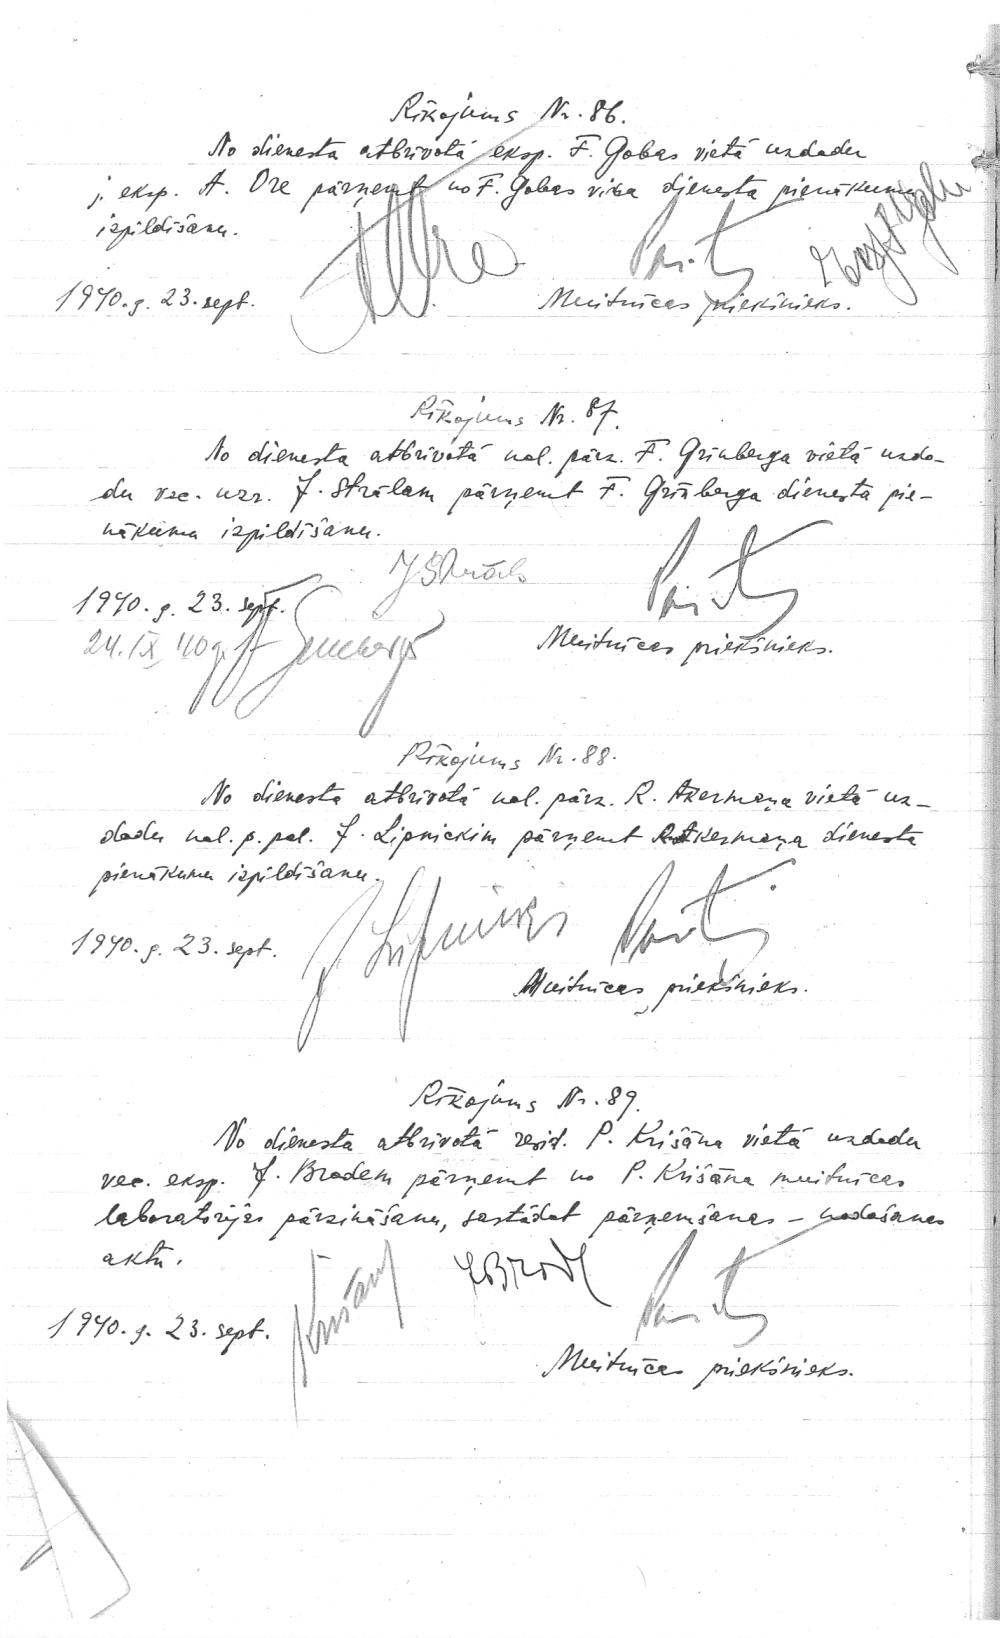 Rīkojums Nr. 86.
No dienesta atbrīvotā eksp. F. Gobas vietā uzdodu
j. eksp. A. Ore pārņemt no F. Gobas viņa dienesta pienākumu
izpildīšanu.
1940. g. 23. sept.
Muitnīcas priekšnieks.
Rīkojums Nr. 87.
No dienesta atbrīvotā nol. pārz. F. Grīnberga vietā uzdo-
du vec. uzr. J. Strālam pārņemt F. Grīnberga dienesta pie-
nākumu izpildīšanu.
JStrāls
1940. g. 23. sept.
24. IX 40 g.
Muitnīcas priekšnieks.
Rīkojums Nr. 88.
No dienesta atbrīvotā nol. pārz. R. Akermaņa vietā uz-
dodu nol. p. pal. J. Lipnickim pārņemt R. Akermaņa dienesta
pienākumu izpildīšanu.
J Lipnickis
1940. g. 23. sept.
Muitnīcas priekšnieks.
Rīkojums Nr. 89.
No dienesta atbrīvotā revid. P. Krišāna vietā uzdodu
vec. eksp. J. Brodem pārņemt no P. Krišāna muitnīcas
laboratorijas pārzināšanu, sastādot pārņemšanas - nodošanas
aktu.
Krišāns
1940. g. 23. sept.
Muitnīcas priekšnieks.